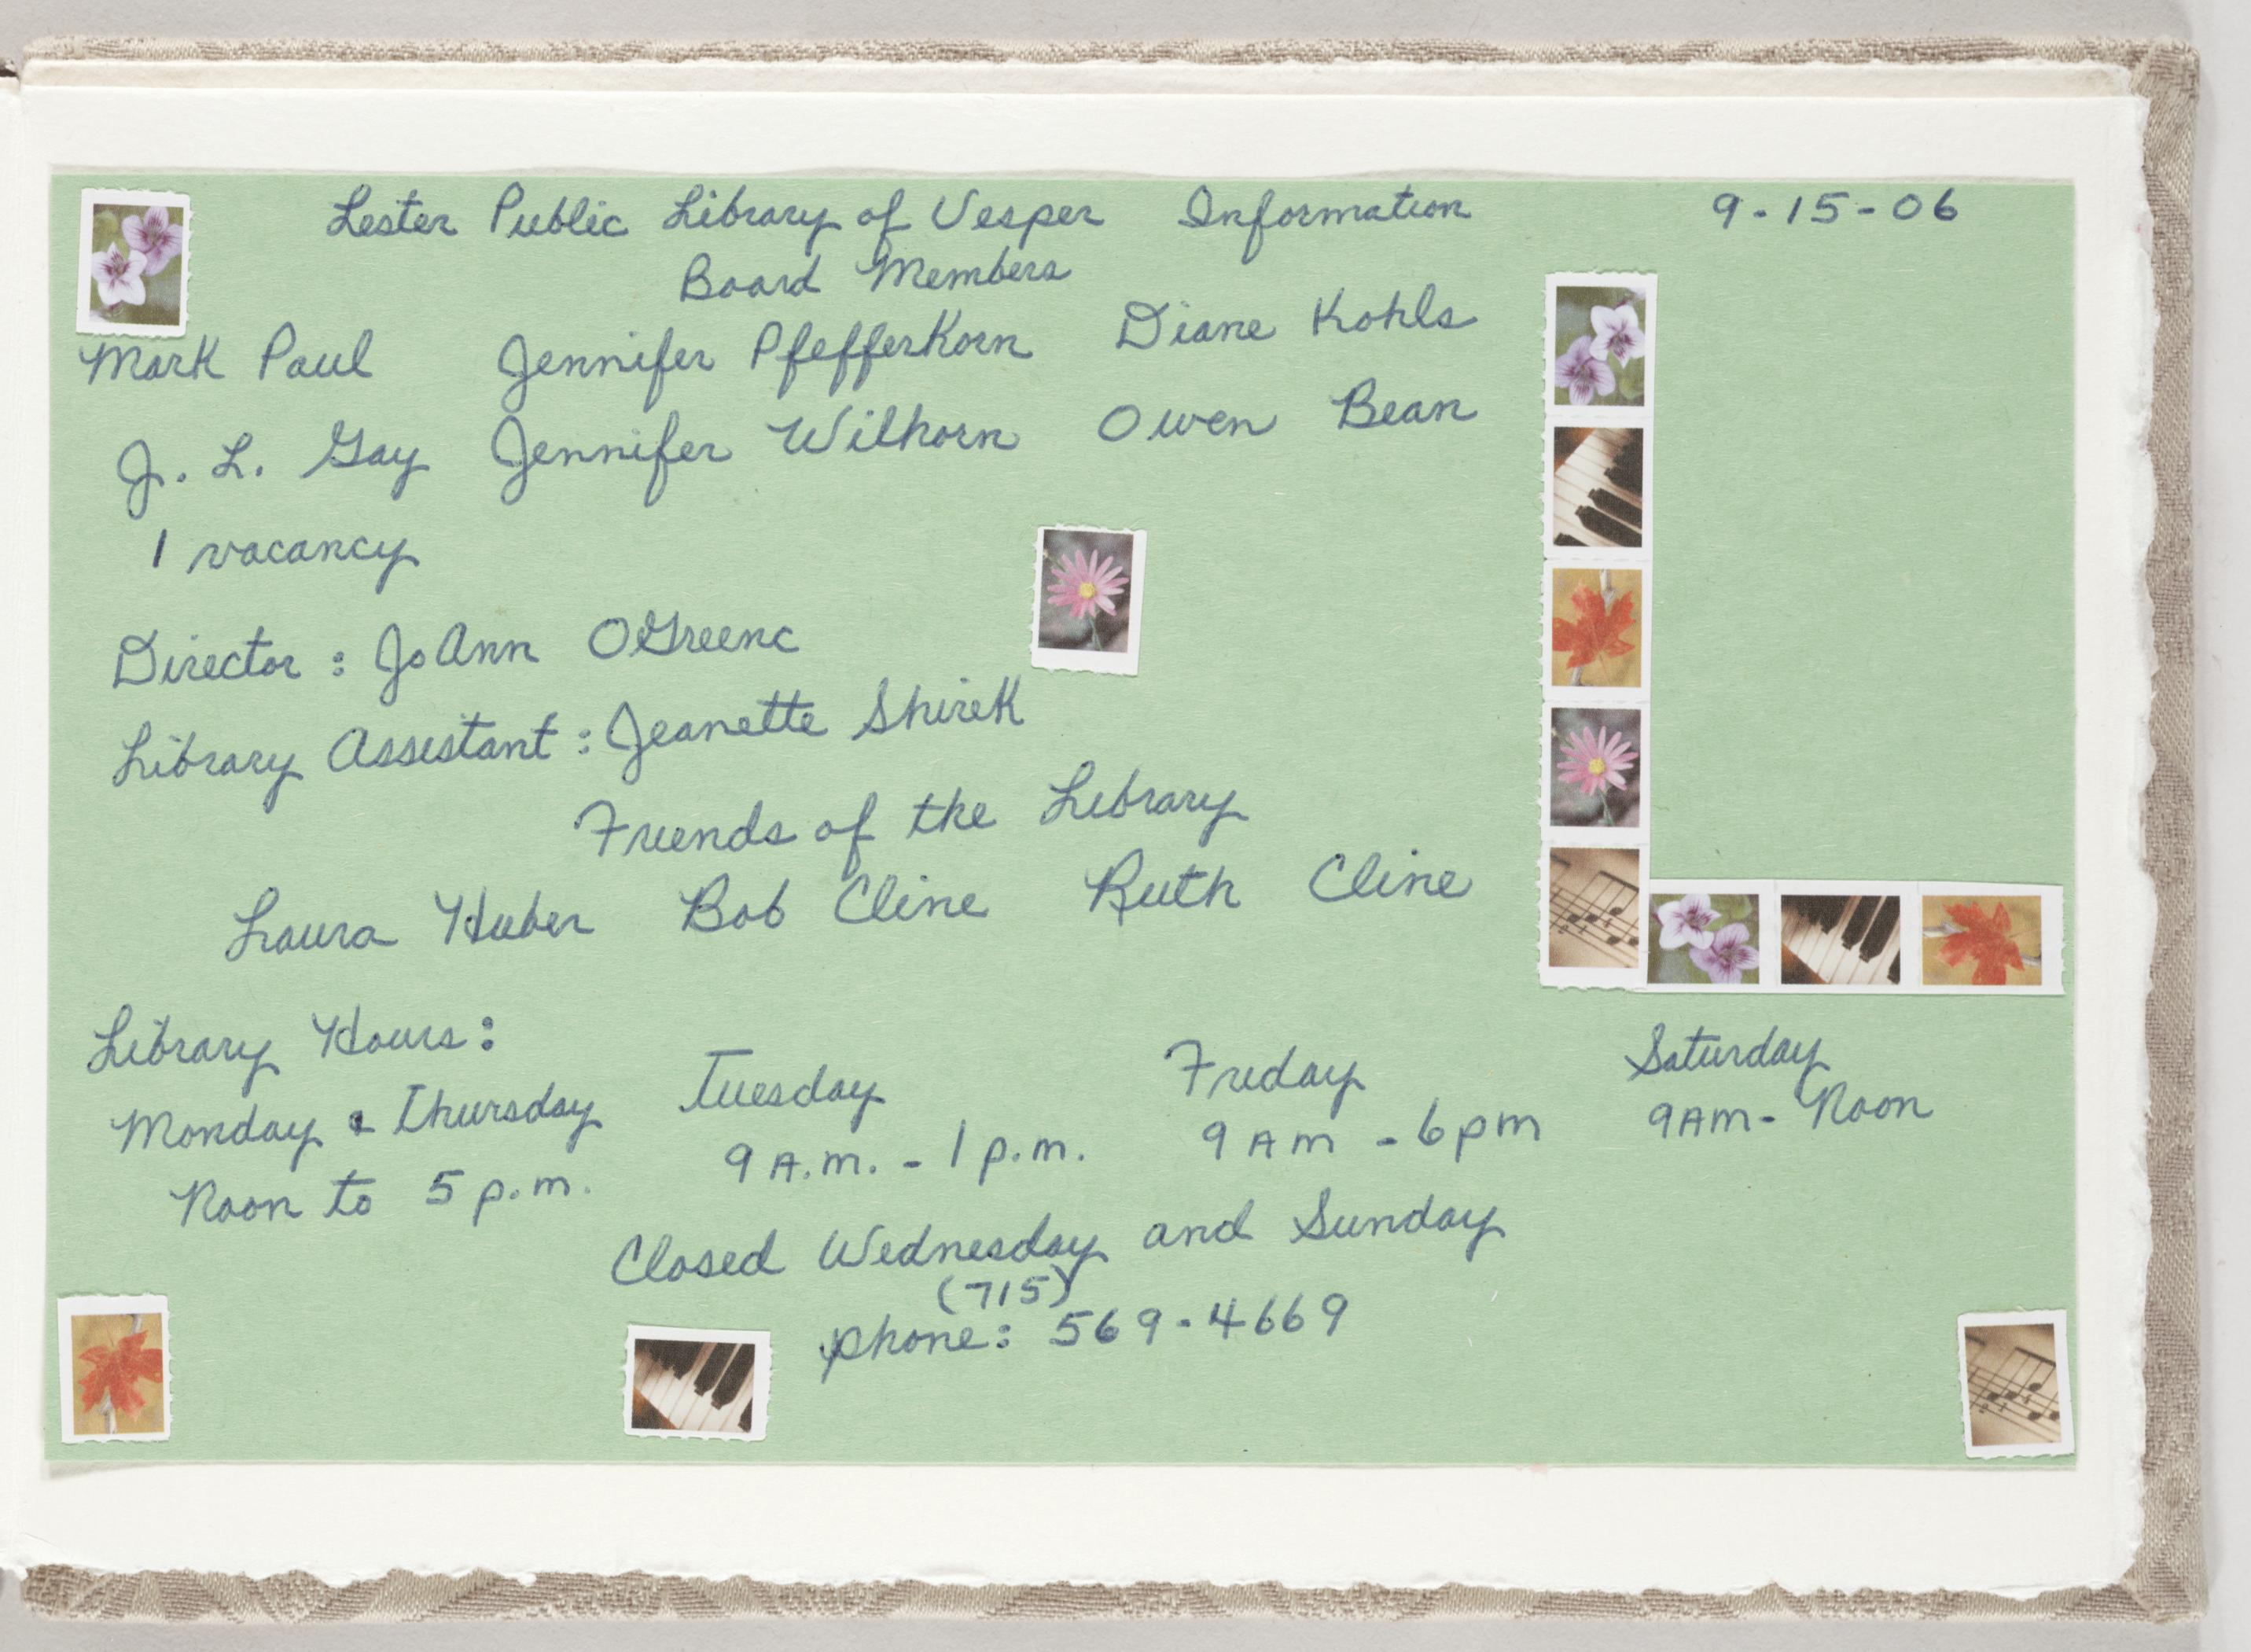 Lester Public Library of Vesper Information 9-15-06
Board Members
Mark Paul Jennifer Pfefferkorn Diane Kohls
J. L. Gay Jennifer Wilhorn Owen Bean
1 vacancy
Director: JoAnn OGreene
Library Assistant: Jeanette Shirek
Friends of the Library
Laura Huber Bob Cline Ruth Cline
Library Hours:
Monday & Thursday Tuesday Friday Saturday
Noon to 5 p.m. 9 A.m. - 1 p.m. 9 Am - 6 pm 9 AM - Noon
Closed Wednesday and Sunday
(715)
phone: 569-4669